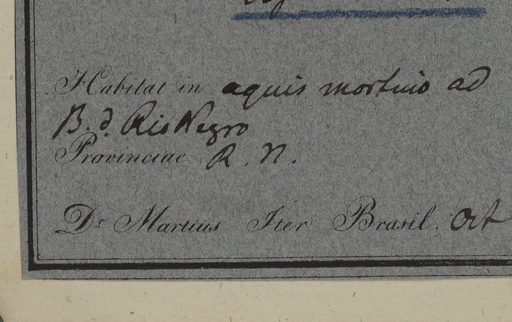 Habitat in aquis mortuis ad
B. d. Rio Negro
Provinciae R. N.
Dr. Martius Iter Brasil. Oct